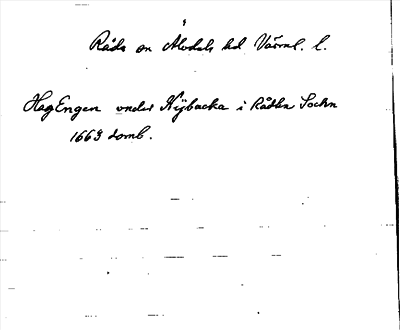 Råda sn Älvdals hd Värml. l.
HagEngen under Nÿbacka i Rådha Sochn
1663 domb.